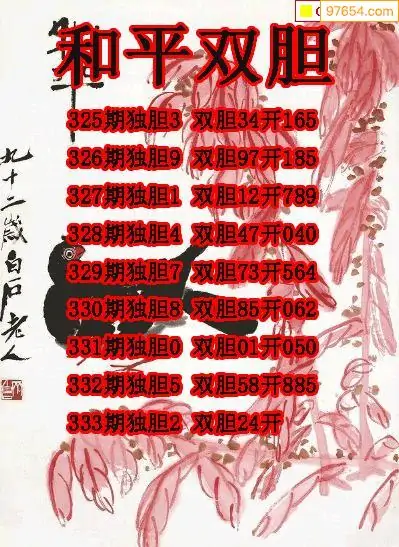 97654.com
和平双胆
325期独胆3 双胆34开165
326期独胆9 双胆97开185
327期独胆1 双胆12开789
328期独胆4 双胆47开040
329期独胆7 双胆73开564
330期独胆8 双胆85开062
331期独胆0 双胆01开050
332期独胆5 双胆58开885
333期独胆2 双胆24开
九十二歲白石老人